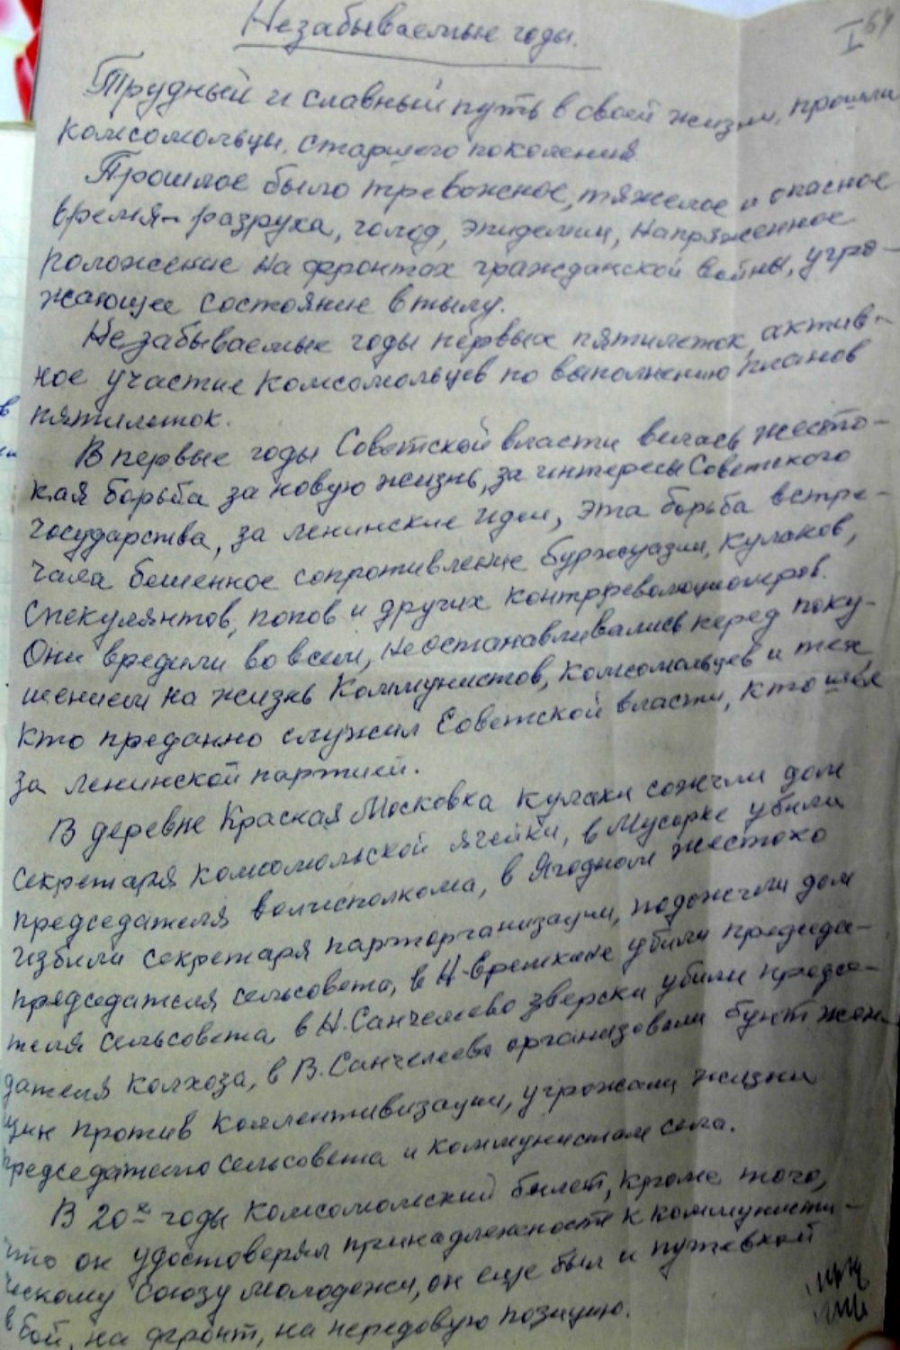 Незабываемые годы.
I 64
Трудный и славный путь в своей жизни прошли
комсомольцы старшего поколения
Прошлое было тревожное, тяжелое и опасное
время - разруха, голод, эпидемии, напряженное
положение на фронтах гражданской войны, угро-
жающее состояние в тылу.
Незабываемые годы первых пятилеток, актив-
ное участие комсомольцев по выполнению планов
пятилеток.
В первые годы Советской власти велась жесто-
кая борьба за новую жизнь, за интересы Советского
государства, за ленинские идеи, эта борьба встре-
чала бешенное сопротивление буржуазии, кулаков,
спекулянтов, попов и других контрреволюционеров.
Они вредили во всем, не останавливались перед поку-
шением на жизнь Коммунистов, комсомольцев и тех,
кто преданно служил Советской власти, кто шёл
за ленинской партией.
В деревне Красная Московка кулаки сожгли дом
секретаря комсомольской ячейки, в Мусорке убили
председателя волисполкома, в Ягодном жестоко
избили секретаря парторганизации, подожгли дом
председателя сельсовета, в Н. убили председа-
теля сельсовета, в Н.Санчелеево зверски убили предсе-
дателя колхоза, в В.Санчелеево организовали бунт жен-
щин против коллективизации, угрожали жизни
председателю сельсовета и коммунистам села.
В 20х годы комсомольский билет, кроме того,
что он удостоверял принадлежность к коммунисти-
ческому союзу молодежи, он еще был и путевкой
в бой, на фронт, на передовую позицию.